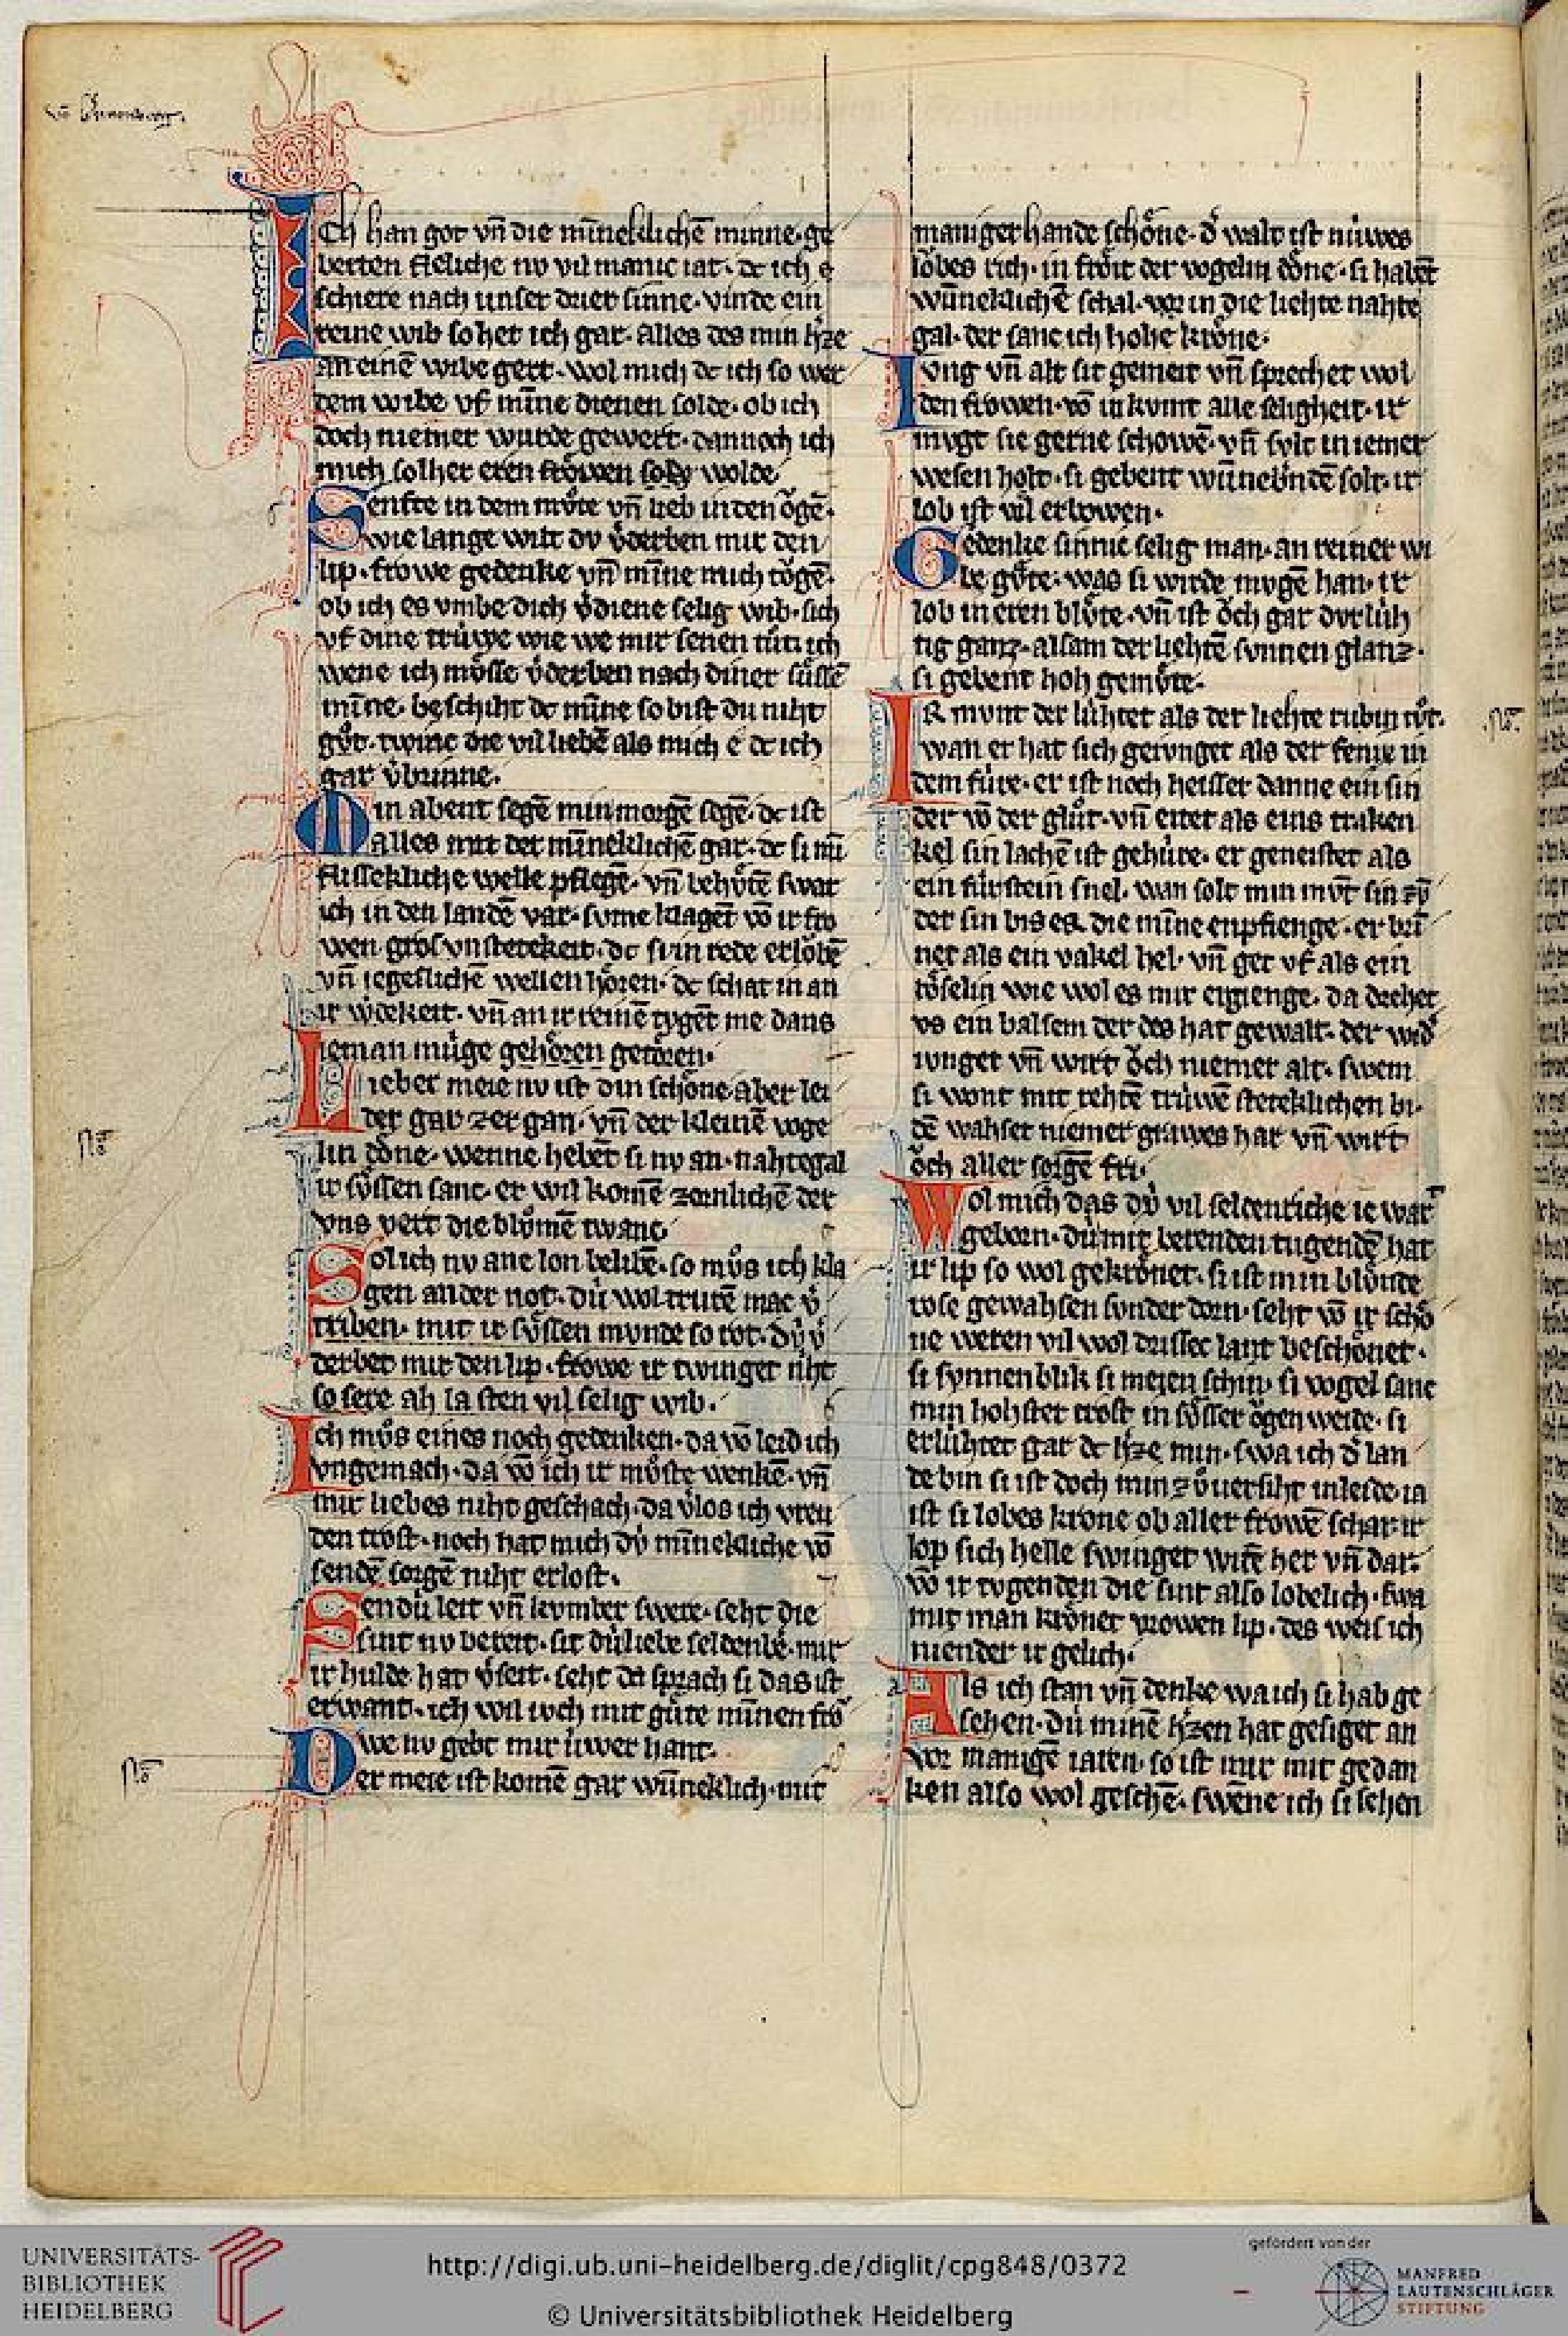 Ich han got vn̄ die mīneklichē minne ge
betten flēliche nv vil manic iar· dc ich e
schiere nach unser drier sinne· vinde ein
reine wib so het ich gar· alles des min h̓ze
an einē wibe gert· wol mich dc ich so wer
dem wibe vf mīne dienen solde· ob ich
doch niemer wurde gewert· dannoch ich
mich solher eren frôwen solde wolde
Senfte in dem mv̊te vn̄ lieb in den ôgē·
swie lange wilt dv v̓derben mir den
lip· frowe gedenke vn̄ mīne mich tôgē·
ob ich es vmbe dich v̓diene selig wib· sich
vf dine trúwe wie we mir senen tůt· ich
wene ich mv̊sse v̓derben nach diner sůssē
mīne· beschiht dc mīne so bist du niht
gv̊t· twinc die vil liebē als mich e dc ich
gar v̓brunne·
Min abent segē min morgē segē· dc ist
alles mit der mīneklichē gar· dc si mī
flisseklìche welle pflegē· vn̄ behv̊tē swar
ich in den landē var· svme klagēt vō ir fro
wen gros vnstetekeit· dc si in rede erlôbē
vn̄ iegeslichē wellen hôren· dc schat in an
ir wirdekeit· vn̄ an ir reinē tvgēt me dans
ieman múge gehôren getôren·
Lieber meie nv ist din schône aber lei
der gar zergan· vn̄ der kleinē voge
lin dône· wenne hebēt si nv an· nahtegal
ir sv̊ssen sanc· er wil komē zornlichē der
vns vert die blv̊mē twanc
Sol ich nv ane lon belibē· so mv̊s ich kla
gen ander not· dú wol trurē mac v̓
triben· mit ir sv̊ssen munde so rot· dú v̓
derbet mir den lip· frowe ir twinget niht
so sere ah la sten vil selig wib·
Ich mv̊s eines noch gedenken· da vō leid ich
vngemach· da vō ich ir mv̊ste wenkē· vn̄
mir liebes niht geschach· da v̓los ich vreu
den trost· noch hat mich dú mīnekliche vō
sendē sorgē niht erlost·
Sendú leit vn̄ kvmber swere· seht die
sint nv bereit· sit dú liebe seldenbe̓· mir
ir hulde hat v̓seit· seht da sprach si das ist
erwant· ich wil ivch mit gůte mīnen frô
we nv gebt mir úwer hant·
Der meie ist komē gar wūneklich· mit
maniger hande schône· d̓ walt ist núwes
lôbes rich· in frôit der vogelin dône· si habēt
wūneklichē schal· vor in die liehte nahte
gal· der sanc ich hohe krône·
Ivng vn̄ alt sit gemeit vn̄ sprechet wol
den frowen· vō in kvmt alle seligheit· ir
mvgt sie gerne schowē· vn̄ svlt in iemer
wesen holt· si gebent wūnebrndē solt· ir
lob ist vil erbowen·
Gedenke sinnic selig man· an reiner wi
be gv̊te· was si wirde mvgē han· ir
lob in eren blv̊te· vn̄ ist ôch gar dvrlúh
tig ganz· alsam der liehtē svnnen glanz·
si gebent hoh gemv̊te·
IR munt der lúhtet als der liehte rubin rôt·
wan er hat sich geivnget als der fenix in
dem fúre· er ist noch heisser danne ein sin
der vō der glůt· vn̄ eitet als eins traken
kel sin lachē ist gehúre· er geneistet als
ein fúrstein snel· wan solt min mvt sin zv̄
der sin bis es die mīne enpfienge· er brī
net als ein vakel hel· vn̄ get vf als ein
rôselin wie wol es mir ergienge· da drehet
vs ein balsem der des hat gewalt· der wid̓
ivnget vn̄ wirt ôch niemer alt· swem
si wont mit rehtē trúwē steteklichen bi·
dē wahset niemer grawes har vn̄ wirt
ôch aller sorgē fri·
Wol mich das dú vil seldenriche ie wart
geborn· dú mit berenden tugendē hat
ir lip so wol gekrônet· si ist min blv̊nde
rose gewahsen sunder dorn· seht vō ir schô
ne weren vil wol drissec lant beschônet·
si svnnenblik si meien schin· si vogel sanc
min hohster trost in sv̊sser ôgen weide· si
erlúhtet gar dc h̓ze min· swa ich d̓ lan
de bin si ist doch min zv̊versiht in leide· ia
ist si lobes krone ob aller frowē schar· ir
lop sich helle swinget witē her vn̄ dar·
vō ir tvgenden die sint also lobelich· swa
mit man krônet vrowen lip· des weis ich
niender ir gelich·
Als ich stan vn̄ denke wa ich si hab ge
sehen· dú minē h̓zen hat gesiget an
vor manigē iaren· so ist mir mit gedan
ken also wol geschē· swēne ich si sehen
UNIVERSITÄTS-
BIBLIOTHEK
HEIDELBERG
http://digi.ub.uni-heidelberg.de/diglit/cpg848/0372
© Universitätsbibliothek Heidelberg
gefördert von der
MANFRED
LAUTENSCHLÄGER
STIFTUNG